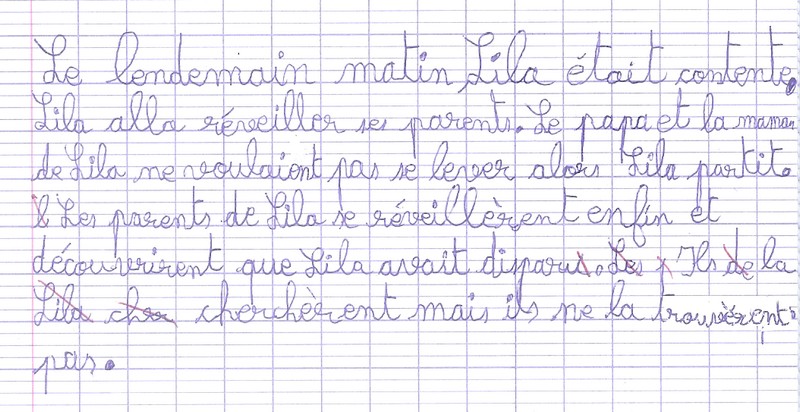 Le lendemain matin, Lila était contente.
Lila alla réveiller ses parents. Le papa et la maman
de Lila ne voulaient pas se lever alors Lila partit.
Les parents de Lila se réveillèrent enfin et
découvrirent que Lila avait disparu. Les Ils de la
Lila cher cherchèrent mais ils ne la trouvèrent
pas.